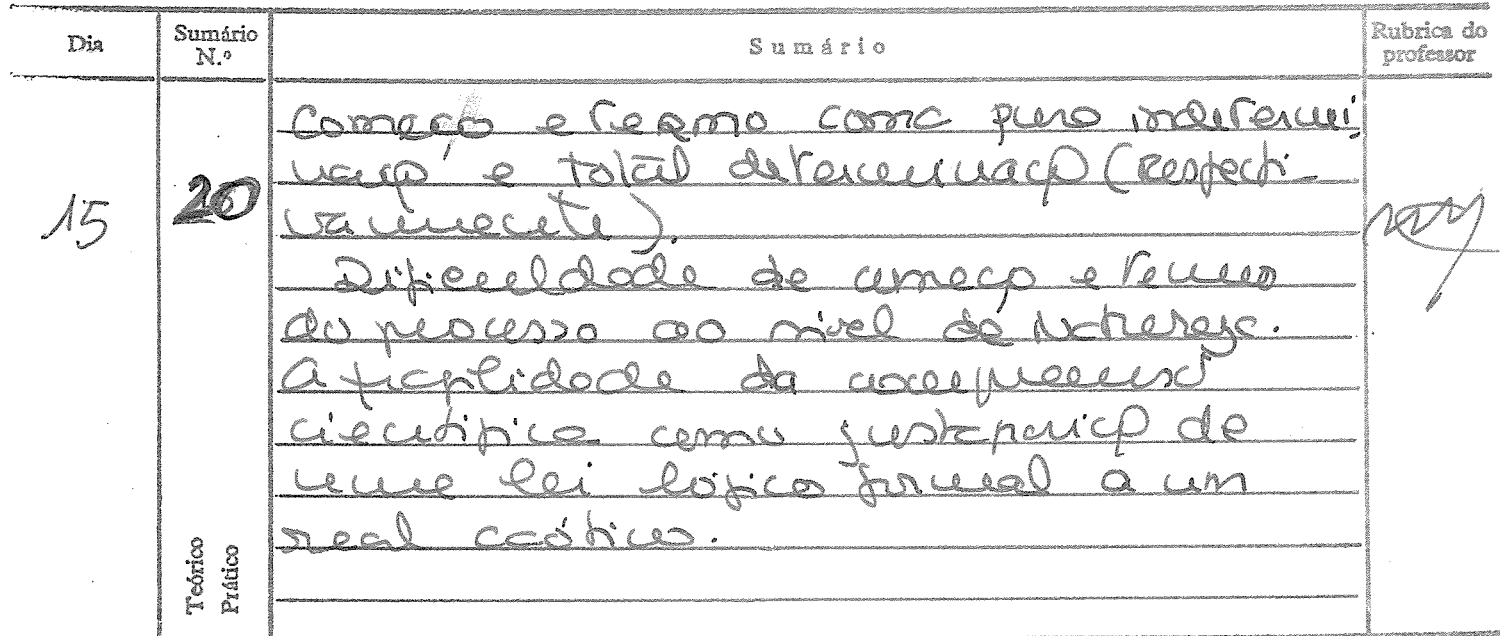 Dia
Sumário N.º
Sumário
Rubrica do professor
15
20
Começo e termo como pura indetermi
naçã e total determinaçã (respecti-
vamente).
Dificuldade de começo e termo
do processo ao nível da Natureza.
A fragilidade da compreensã
científica como justaposiçã de
uma lei lógico formal a um
real caótico.
Teórico
Prático